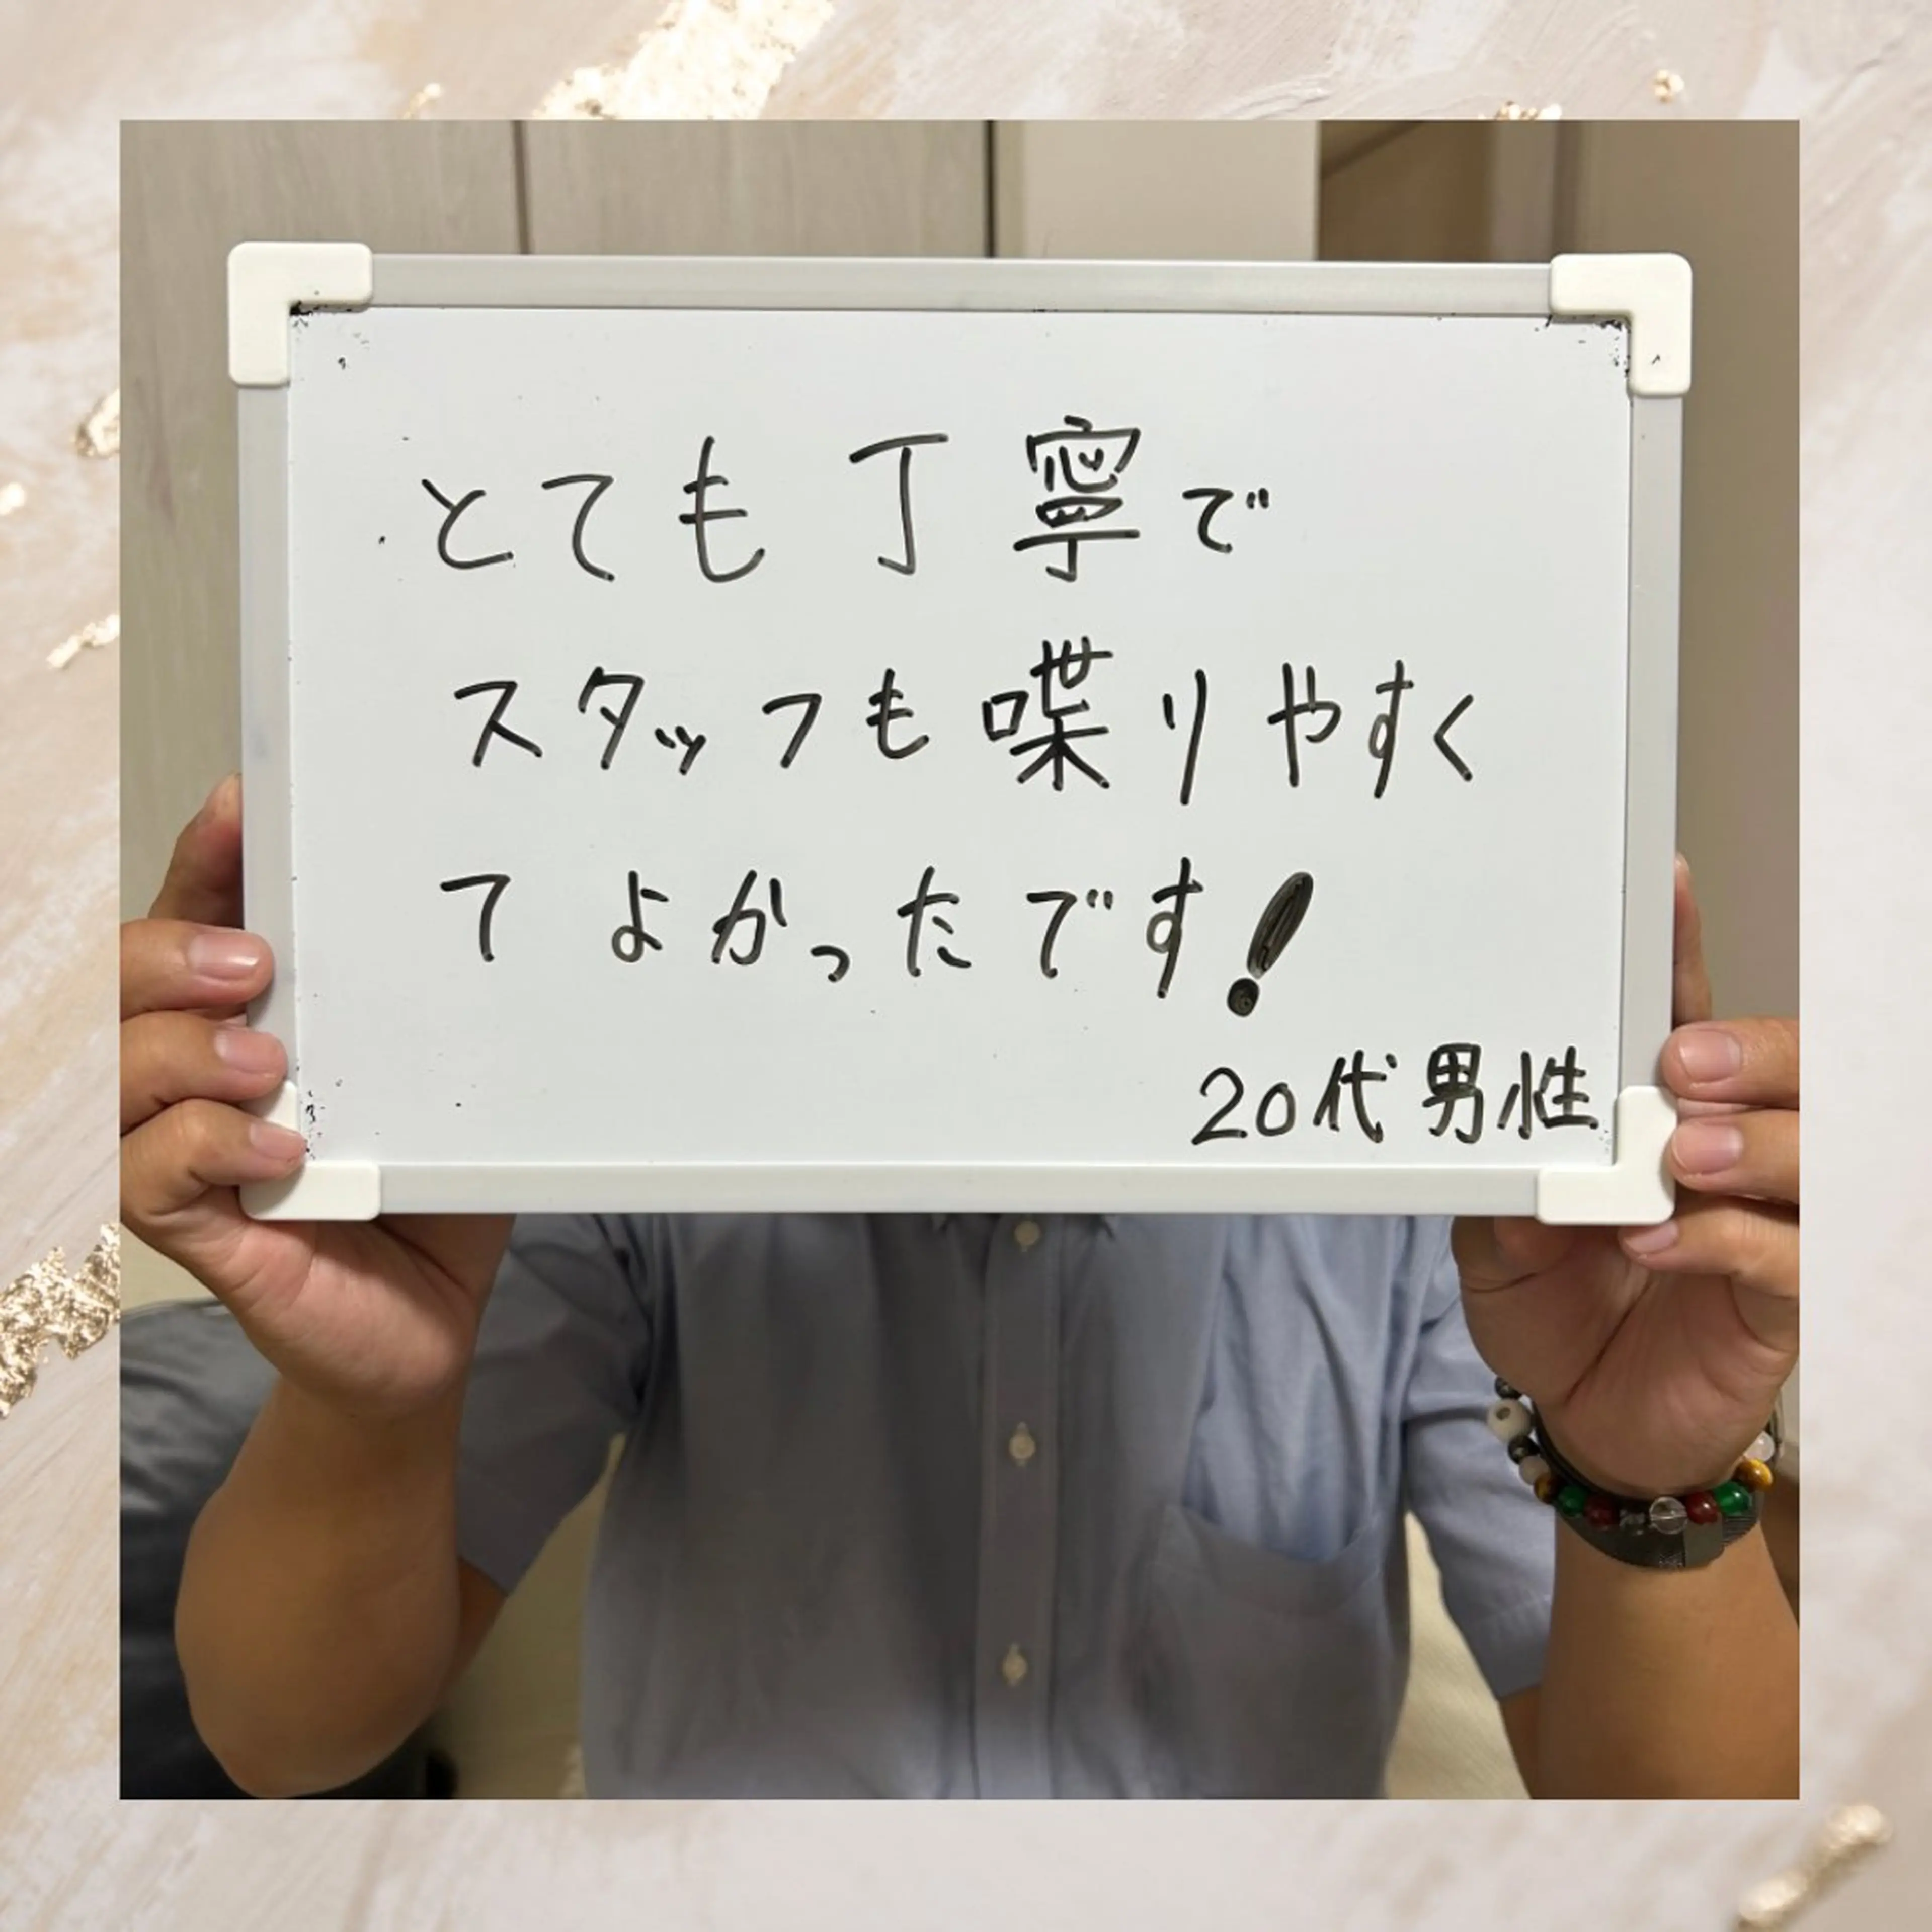 とても丁寧で
スタッフも喋りやすく
てよかったです!
20代男性